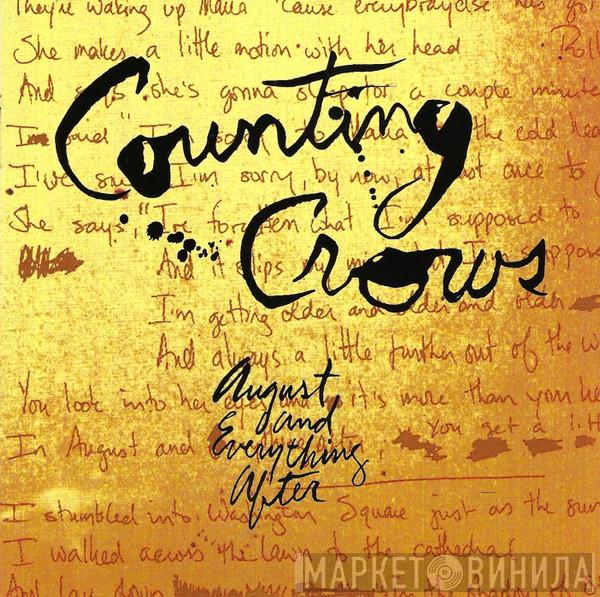 They're waking up Maria 'cause everybody else has got
She makes a little motion with her head Roll
And says she's gonna sleep for a couple minutes
Counting
I said "I'm sorry" to Maria the cold hea
I've said I'm sorry, by now, at least once to
Crows
She says, "I've forgotten what I'm supposed to
And it slips my mind I suppose
I'm getting older and older and older
And always a little further out of the w
August
and
Everything
After
You look into her eyes and it's more than you he
In August and You get a litt
I stumbled into Washington Square just as the sun
I walked across the lawn to the cathedral
And lay down in the shadow of
МАРКЕТ ВИНИЛА